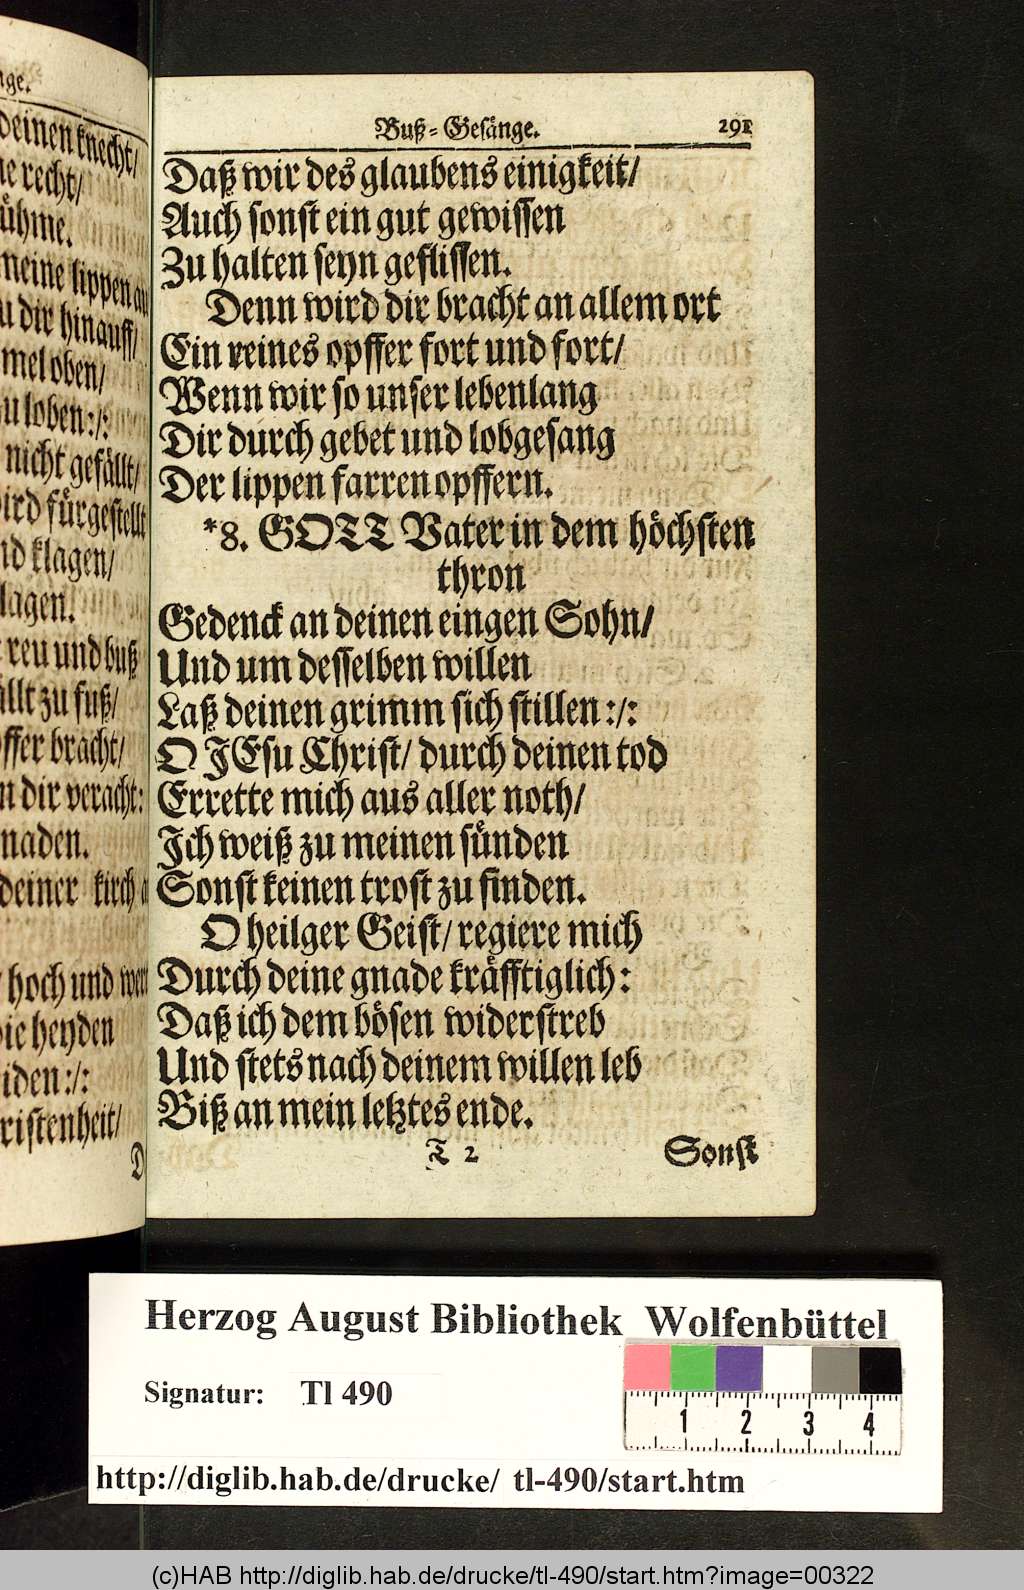 nge.
deinen knecht/
ne recht/
ühme.
meine lippen
u dir hinauff/
mel oben/
u loben :/:
nicht gefällt/
ird fürgestellt
nd klagen/
lagen.
reu und buß
ällt zu fuß/
ffer bracht/
n dir veracht:
naden.
deiner kirch
hoch und wer
ie heyden
iden :/:
ristenheit/
D
Buß-Gesänge. 291
Daß wir des glaubens einigkeit/
Auch sonst ein gut gewissen
Zu halten seyn geflissen.
Denn wird dir bracht an allem ort
Ein reines opffer fort und fort/
Wenn wir so unser lebenlang
Dir durch gebet und lobgesang
Der lippen farren opffern.
*8. GOTT Vater in dem höchsten
thron
Gedenck an deinen eingen Sohn/
Und um desselben willen
Laß deinen grimm sich stillen :/:
O JEsu Christ/ durch deinen tod
Errette mich aus aller noth/
Ich weiß zu meinen sünden
Sonst keinen trost zu finden.
O heilger Geist/ regiere mich
Durch deine gnade kräfftiglich:
Daß ich dem bösen widerstreb
Und stets nach deinem willen leb
Biß an mein letztes ende.
T 2 Sonst
Herzog August Bibliothek Wolfenbüttel
Signatur: Tl 490
1 2 3 4
http://diglib.hab.de/drucke/ tl-490/start.htm
(c)HAB http://diglib.hab.de/drucke/tl-490/start.htm?image=00322